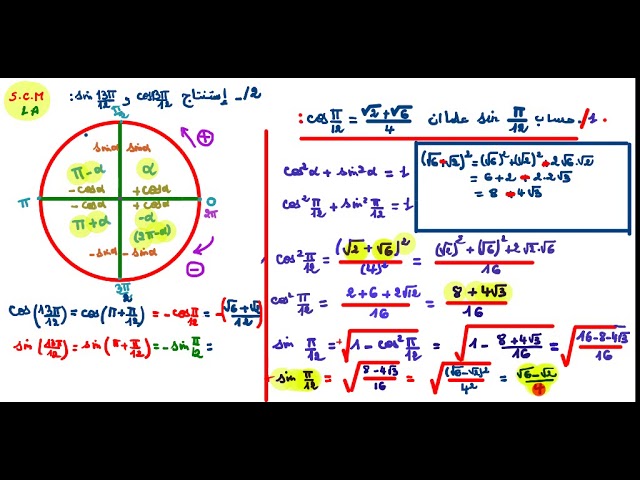 S.C.M
LA
2/- إستنتاج cos 13π/12 و sin 13π/12 :
π/2
sinα sinα
π-α α
-cosα +cosα
π 0
2π
-cosα +cosα
π+α -α
(2π-α)
-sinα -sinα
3π/2
+
-
cos(13π/12) = cos(π+π/12) = -cos π/12 = -(√6+√2/12)
sin(13π/12) = sin(π+π/12) = -sin π/12 =
1/. حساب sin π/12 علما ان cos π/12 = √2+√6/4 :
cos²α + sin²α = 1
cos² π/12 + sin² π/12 = 1
(√6-√2)² = (√6)²+(√2)² - 2√6·√2
= 6+2 - 2·2√3
= 8 - 4√3
cos² π/12 = (√2+√6)²/(4)² = (√2)²+(√6)²+2√2·√6/16
cos² π/12 = 2+6+2√12/16 = 8+4√3/16
sin π/12 = +√(1-cos² π/12) = √(1 - 8+4√3/16) = √(16-8-4√3/16)
sin π/12 = √(8-4√3/16) = √((√6-√2)²/4²) = √6-√2/4